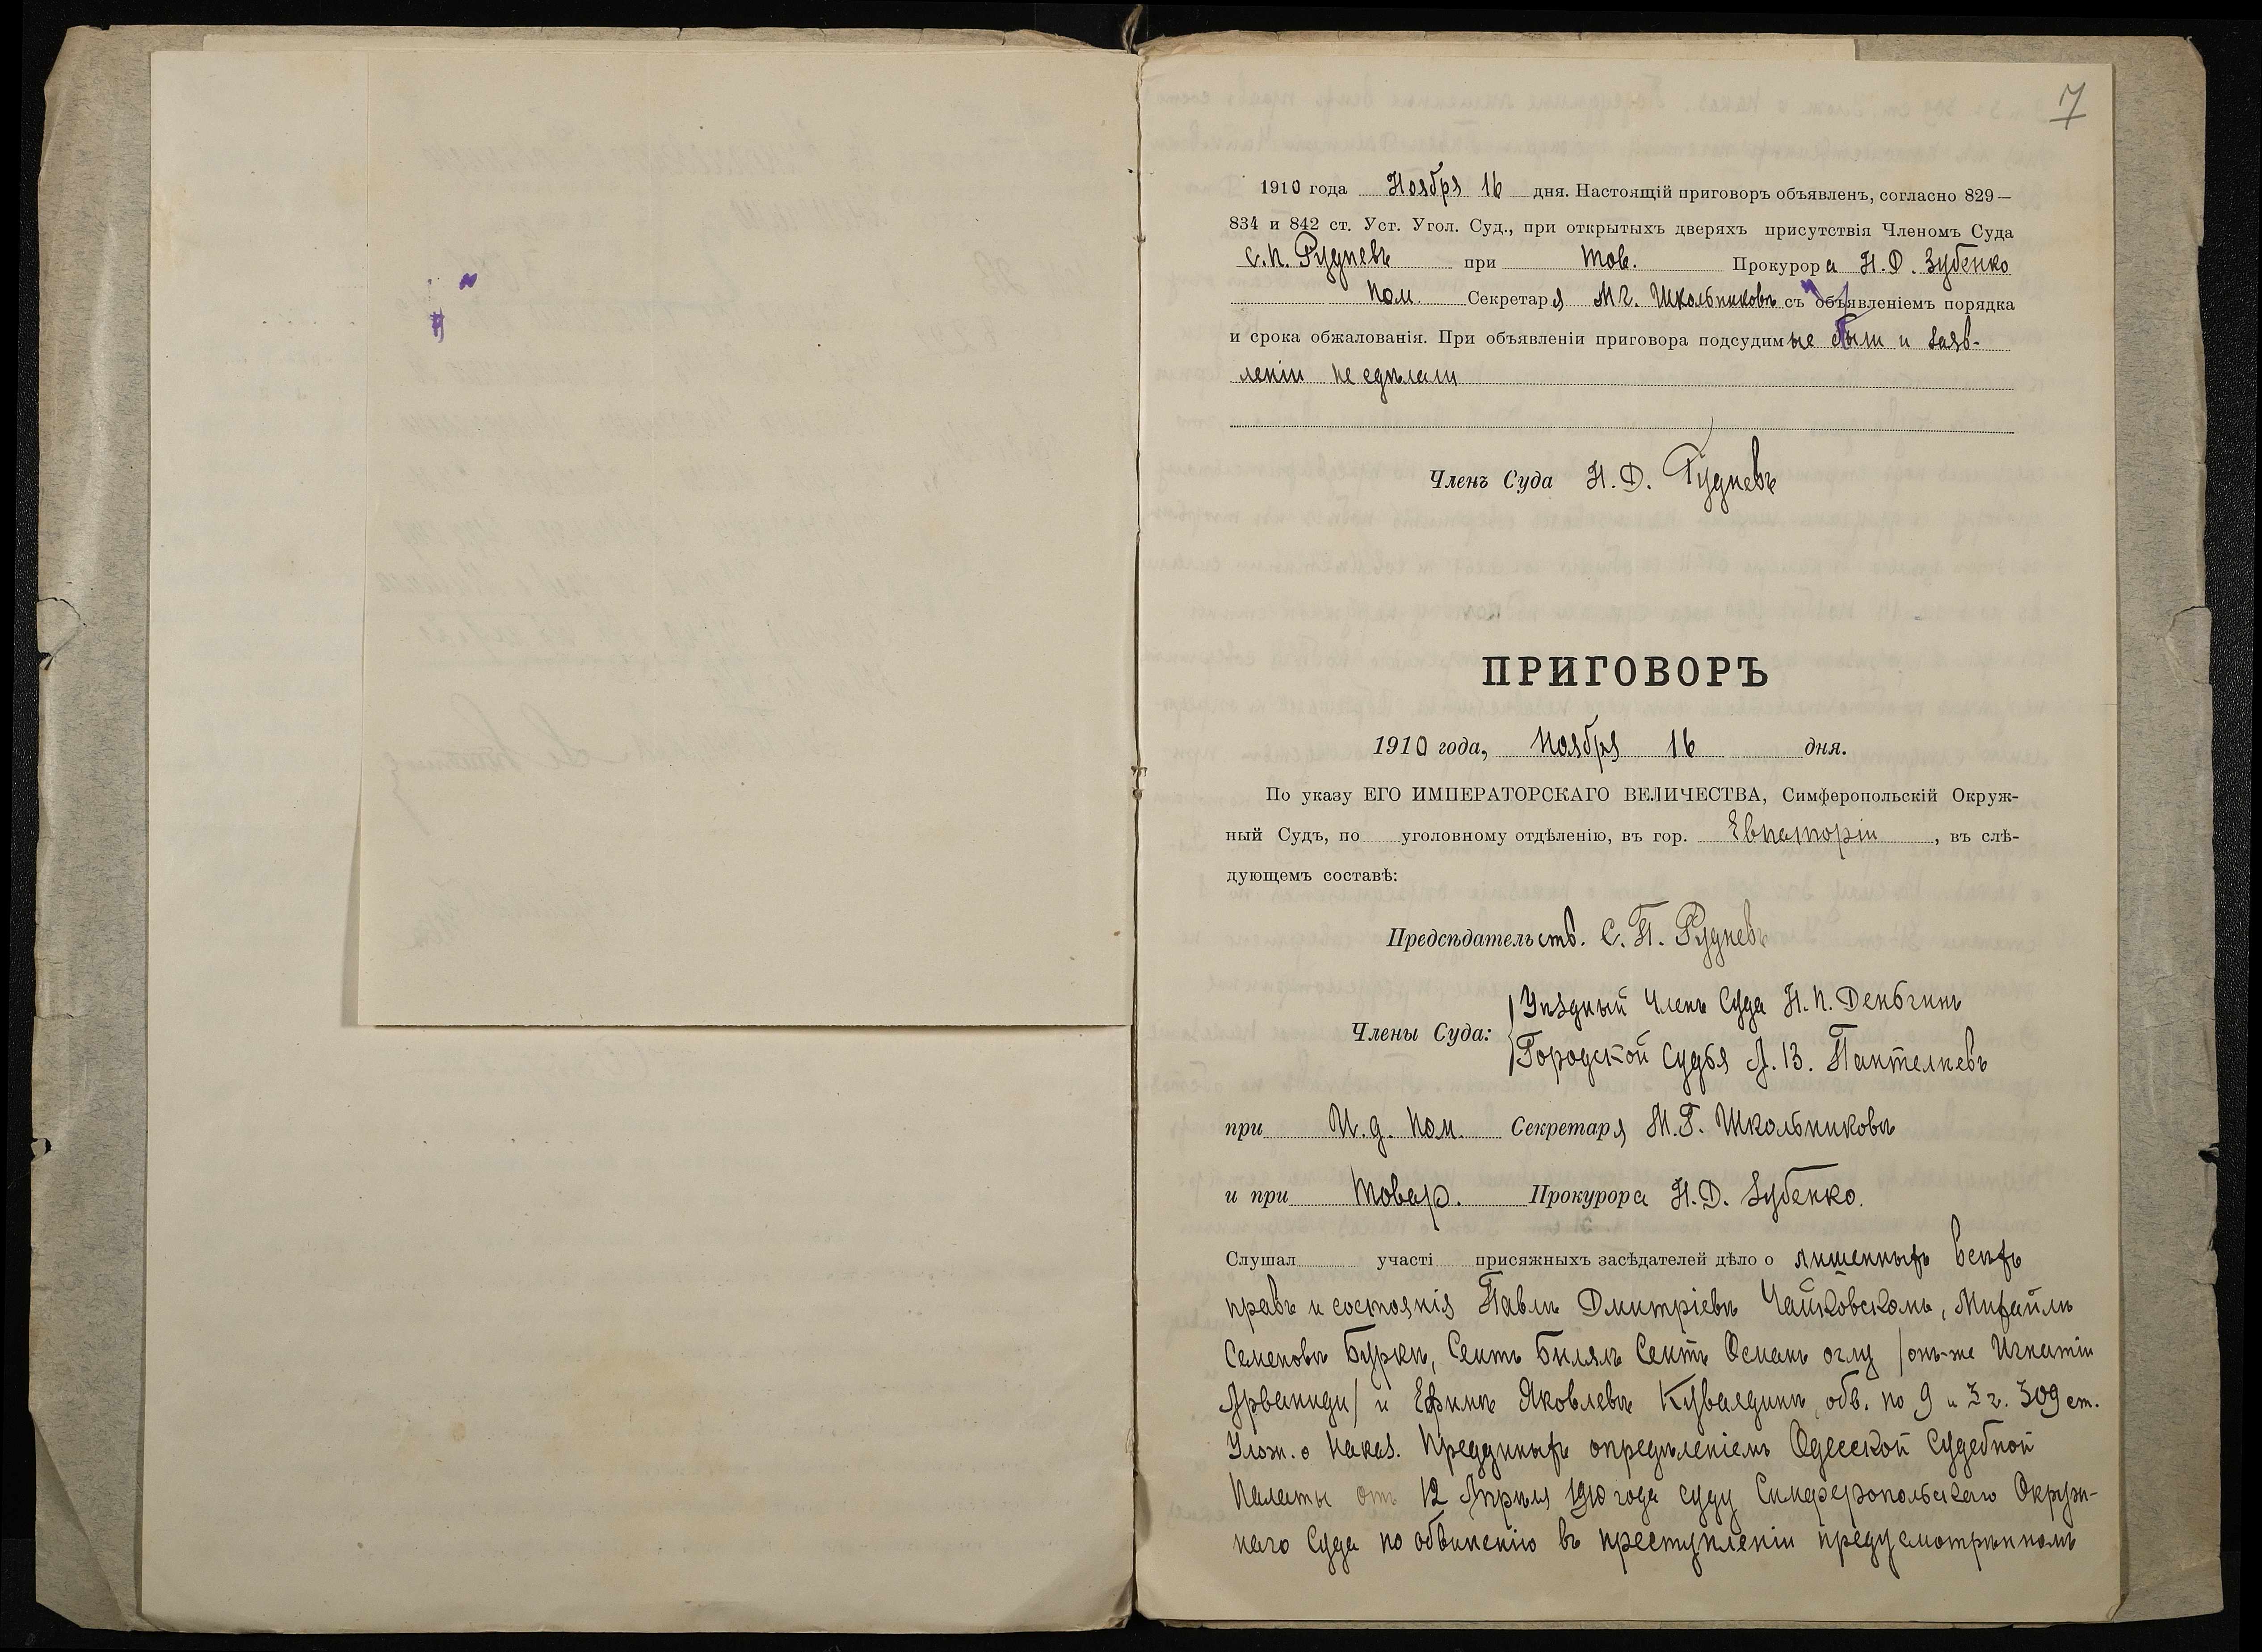 7
1910 года Ноября 16 дня. Настоящій приговоръ объявленъ, согласно 829—
834 и 842 ст. Уст. Угол. Суд., при открытыхъ дверяхъ присутствія Членомъ Суда
С. П. Рудневъ при Тов. Прокурора Н. Д. Зубенко
Пом. Секретаря М. Г. Школьниковѣ съ объявленіемъ порядка
и срока обжалованія. При объявленіи приговора подсудимые были и заяв-
леніи не сдѣлали
Членъ Суда Н. Д. Рудневъ
ПРИГОВОРЪ
1910 года, Ноября 16 дня.
По указу ЕГО ИМПЕРАТОРСКАГО ВЕЛИЧЕСТВА, Симферопольскій Окруж-
ный Судъ, по уголовному отдѣленію, въ гор. Евпаторіи, въ слѣ-
дующемъ составѣ:
Предсѣдательств. С. П. Рудневъ
Члены Суда:
Уѣздный Членъ Суда Н. П. Деньгинъ
Городской Судья А. В. Пантелѣевъ
при И. д. Пом. Секретаря М. Г. Школьниковѣ
и при Товар. Прокурора Н. Д. Зубенко.
Слушал участі присяжныхъ засѣдателей дѣло о лишенныхъ всѣхъ
правъ и состоянія Павлѣ Дмитріевѣ Чайковскомъ, Михайлѣ
Семеновѣ Буркѣ, Сеитъ Билялъ Сеитъ Османъ оглу /онъ-же Игнатіи
Арваниди/ и Ефимѣ Яковлевѣ Кувалдинѣ, обв. по 9 и 3 ч. 309 ст.
Улож. о Наказ. Преданныхъ опредѣленіемъ Одесской Судебной
Палаты отъ 12 Апрѣля 1910 года суду Симферопольскаго Окруж-
наго Суда по обвиненію въ преступленіи предусмотрѣнномъ